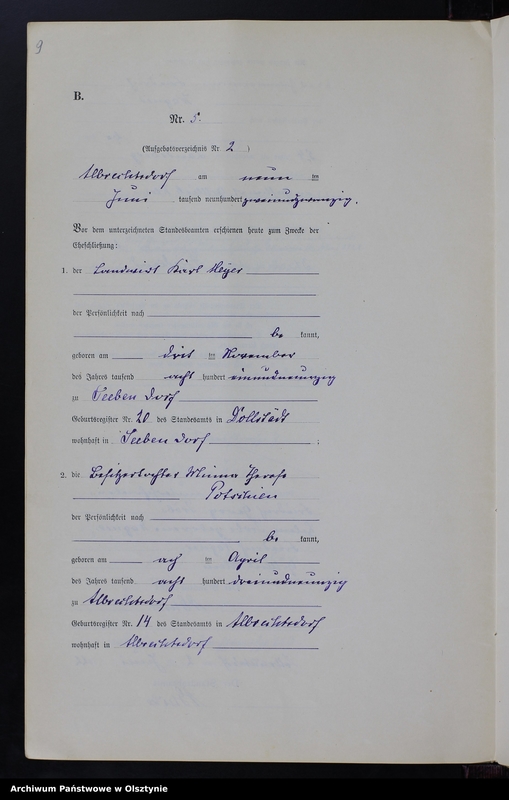 9
B.
Nr. 5.
(Aufgebotsverzeichnis Nr. 2)
Albrechtsdorf am neun ten
Juni tausend neunhundert zweiundzwanzig.
Vor dem unterzeichneten Standesbeamten erschienen heute zum Zwecke der
Eheschließung:
1. der Landwirt Karl Meyer
der Persönlichkeit nach
be kannt,
geboren am drit ten November
des Jahres tausend acht hundert einundneunzig
zu Seeben dorf
Geburtsregister Nr. 20 des Standesamts in Dollstädt
wohnhaft in Seeben dorf ;
2. die Besitzertochter Minna Therese
der Persönlichkeit nach
be kannt,
geboren am ach ten April
des Jahres tausend acht hundert dreiundneunzig
zu Albrechtsdorf
Geburtsregister Nr. 14 des Standesamts in Albrechtsdorf
wohnhaft in Albrechtsdorf
Archiwum Państwowe w Olsztynie